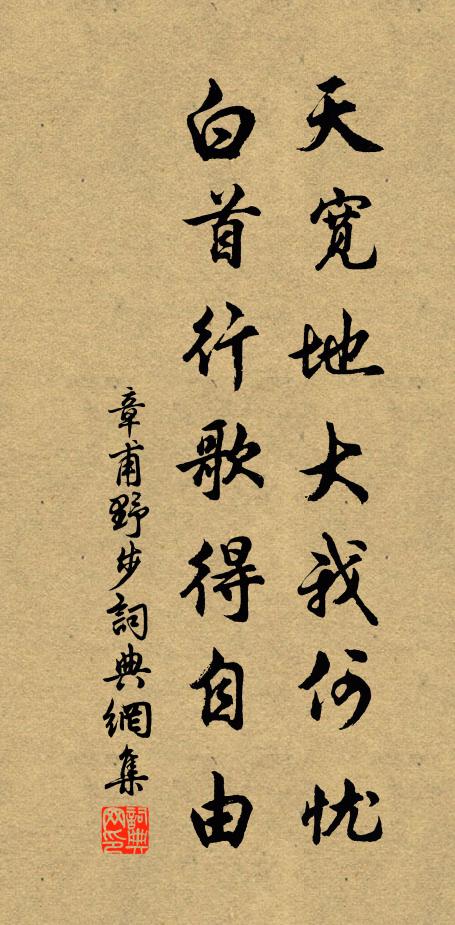 天宽地大我何忧
白首行歌得自由
章甫野步詞典網集
詞典網印